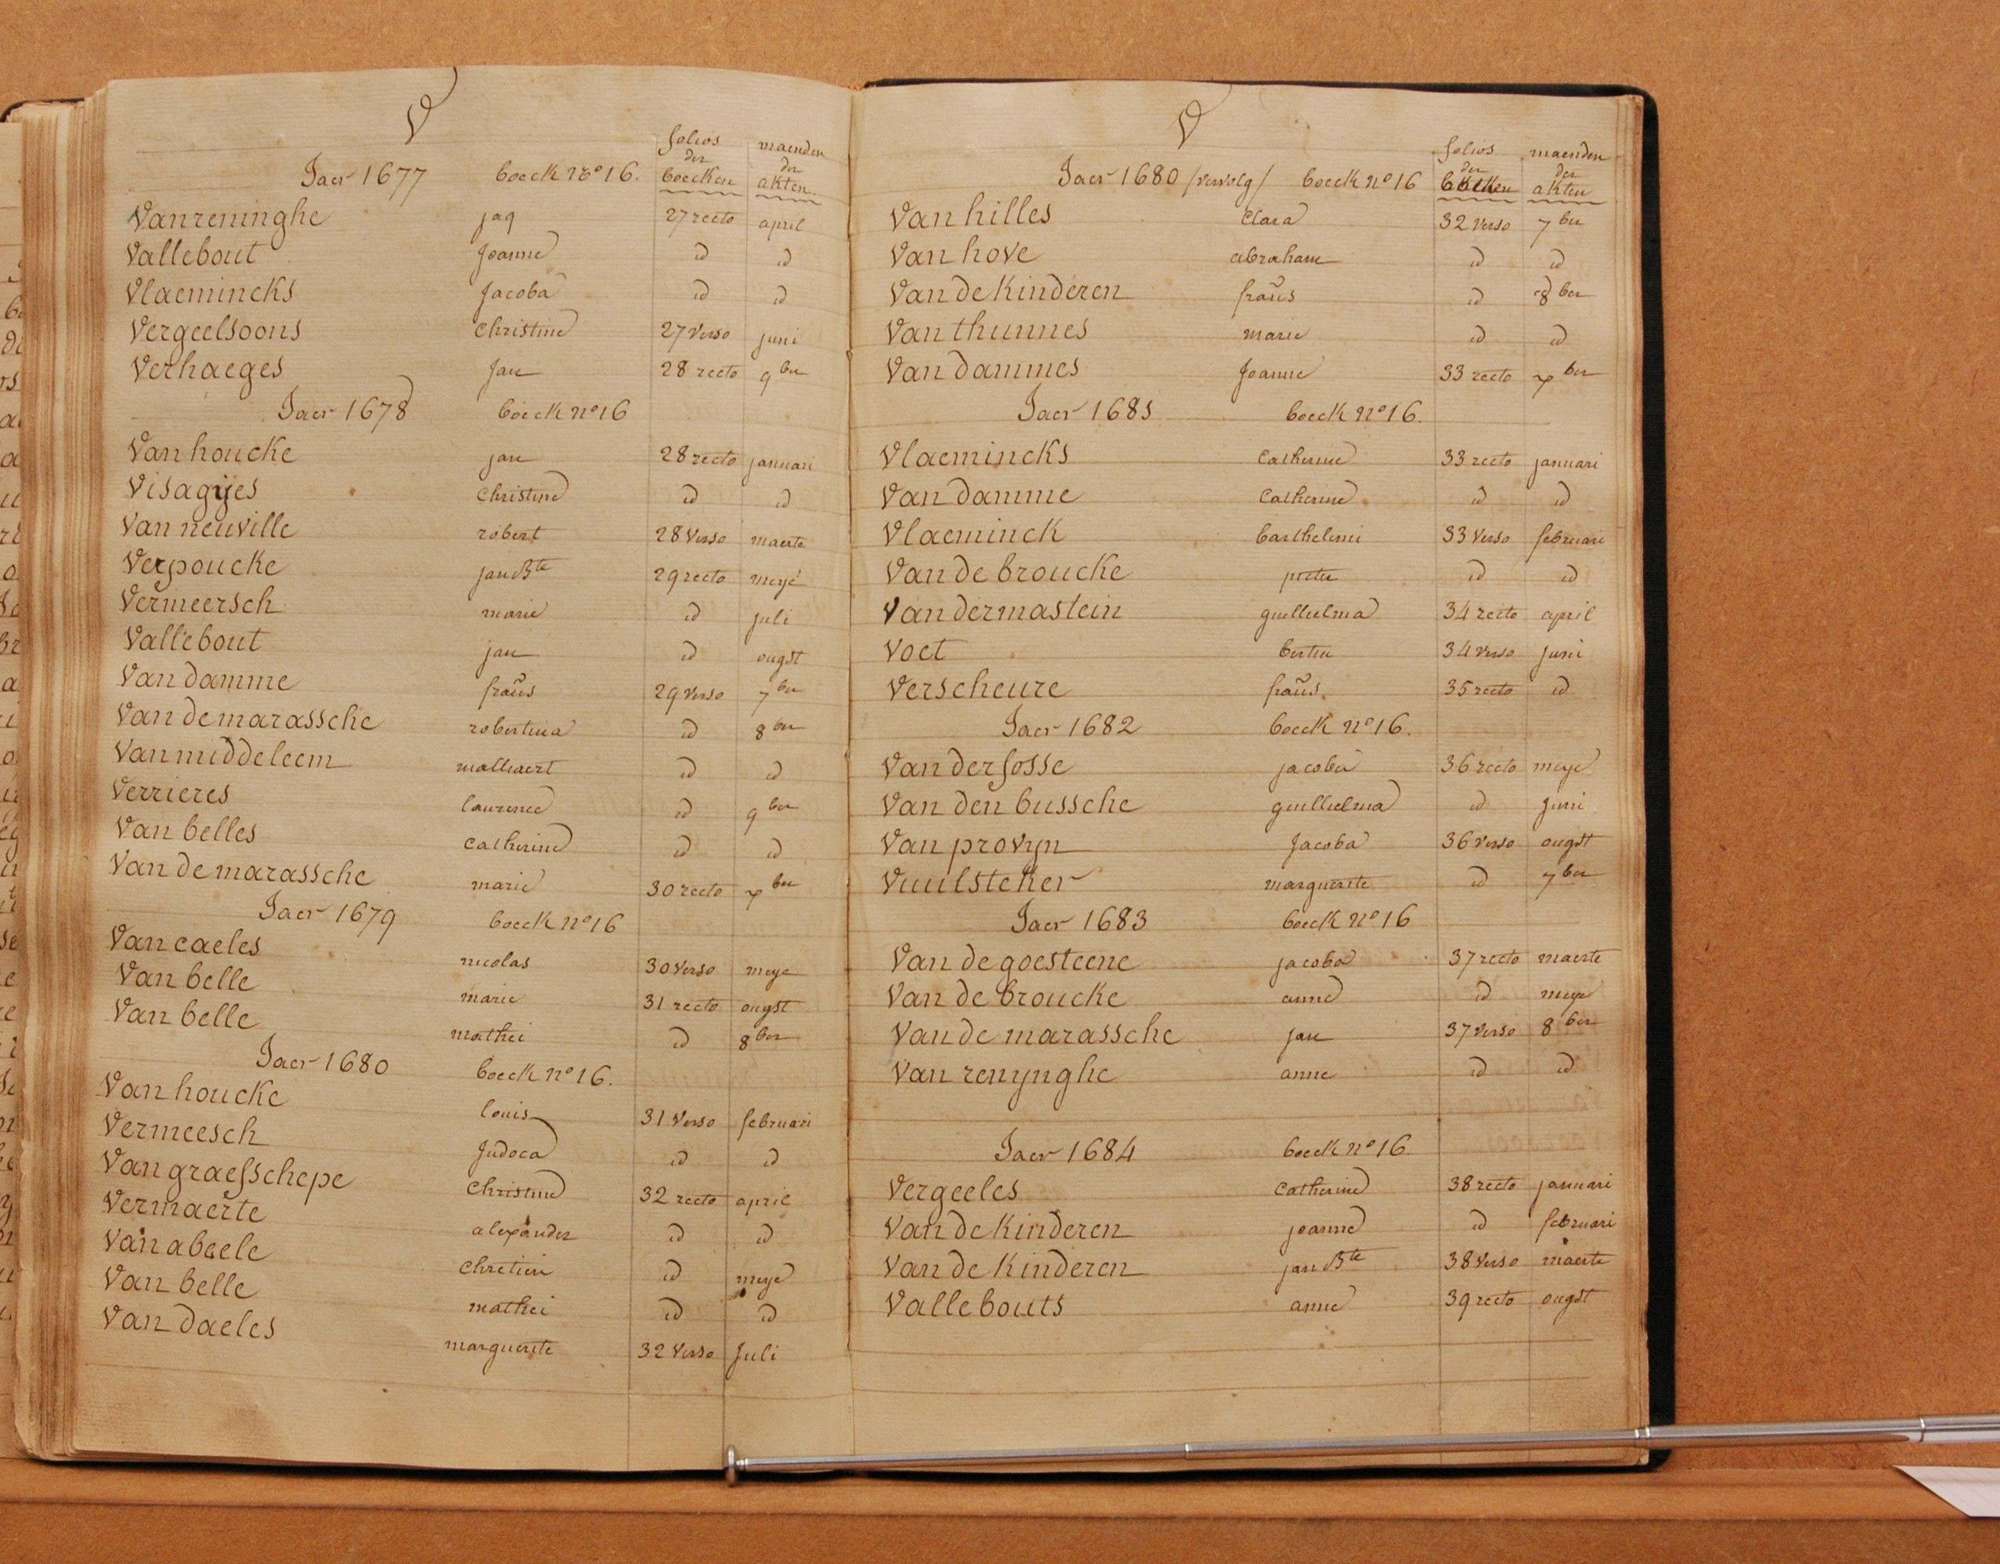 V
folios der boecken
maenden der akten.
Jaer 1677 boeck no 16.
Vanreninghe jaq 27 recto april
Vallebout Joanne id id
Vlaemincks Jacoba id id
Vergeelsoons Christine 27 verso juni
Verhaeges Jan 28 recto 9ber
Jaer 1678 boeck no 16
Van houcke jan 28 recto januari
Visagÿes Christine id id
Van neuville robert 28 verso maerte
Verpoucke jan Bte 29 recto meye
Vermeersch marie id juli
Vallebout jan id ougst
Van damme frañs 29 verso 7ber
Van de marassche robertina id 8ber
Van middeleem mathaert id id
Verrieres laurence id 9ber
Van belles Catherine id id
Van de marassche marie 30 recto xber
Jaer 1679 boeck no 16
Van caeles nicolas 30 verso meye
Van belle marie 31 recto ougst
Van belle mathei id 8ber
Jaer 1680 boeck no 16.
Van houcke louis 31 verso februari
Vermeesch Judoca id id
Van graefschepe Christine 32 recto april
Vermaerte alexander id id
Van abeele Chretien id meye
Van belle mathei id id
Van daeles marguerite 32 verso Juli
V
folios der boecken
maenden der akten
Jaer 1680 /vervolg/ boeck no 16
Van hilles Clara 32 verso 7ber
Van hove abraham id id
Van de Kinderen frañs id 8ber
Van thunnes marie id id
Van dammes Joanne 33 recto xber
Jaer 1681 boeck no 16.
Vlaemincks Catherine 33 recto januari
Van damme Catherine id id
Vlaeminck barthelemi 33 verso februari
Van de broucke pieter id id
Van dermastein guillielma 34 recto april
Voet bertin 34 verso juni
Verscheure frañs. 35 recto id
Jaer 1682 boeck no 16.
Van der fosse jacoba 36 recto meye
Van den bussche guillielma id Juni
Van provyn Jacoba 36 verso ougst
Vuulsteker marguerite id 7ber
Jaer 1683 boeck no 16
Van de goesteene jacoba 37 recto maerte
Van de broucke anne id meye
Van de marassche jan 37 verso 8ber
Van renynghe anne id id
Jaer 1684 boeck no 16.
Vergeeles Catherine 38 recto januari
Van de Kinderen joanne id februari
Van de Kinderen jan Bte 38 verso maerte
Vallebouts anne 39 recto ougst